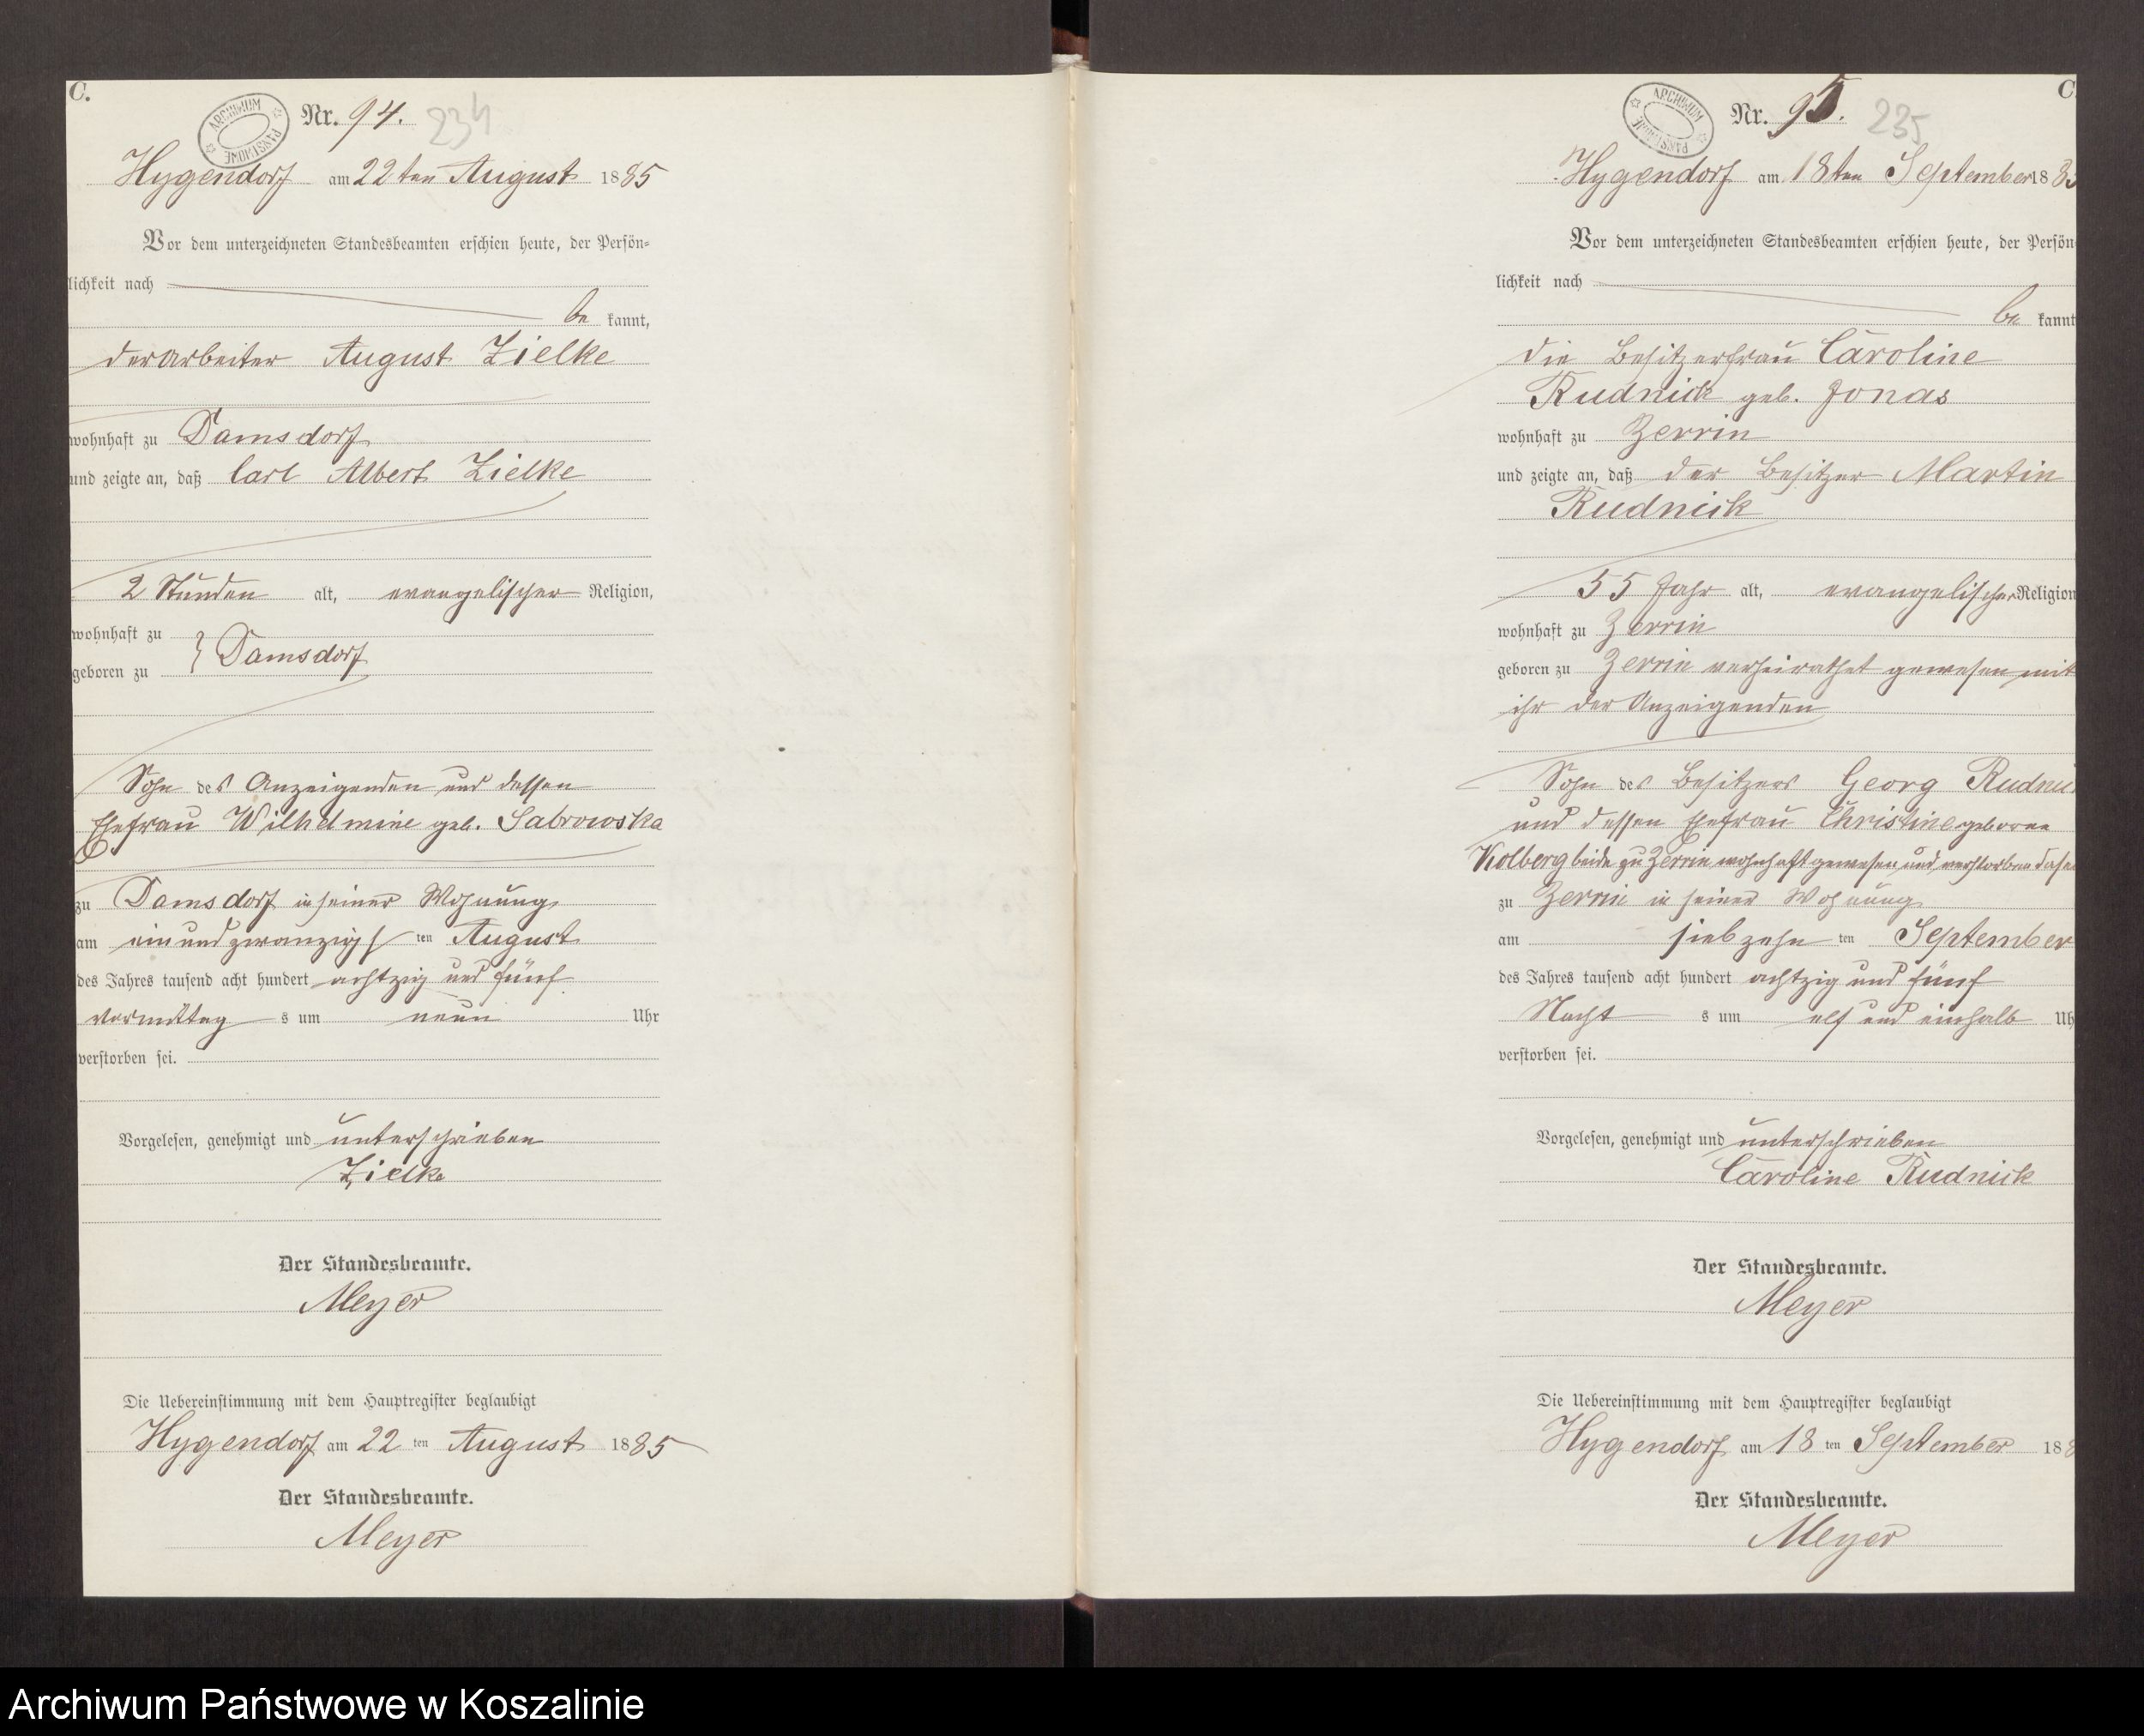 C.
ARCHIWUM PAŃSTWOWE
Nr. 94. 234
Hygendorf am 22ten August 1885
Vor dem unterzeichneten Standesbeamten erschien heute, der Persön-
lichkeit nach
be kannt,
der Arbeiter August Zielke
wohnhaft zu Damsdorf
und zeigte an, daß Carl Albert Zielke
2 Stunden alt, evangelischer Religion,
wohnhaft zu
geboren zu } Damsdorf
Sohn des Anzeigenden und dessen
Ehefrau Wilhelmine geb. Sabrowska
zu Damsdorf in seiner Wohnung
am ein und zwanzigs ten August
des Jahres tausend acht hundert achtzig und fünf
vormittag s um neun Uhr
verstorben sei.
Vorgelesen, genehmigt und unterschrieben
Zielke
Der Standesbeamte.
Meyer
Die Uebereinstimmung mit dem Hauptregister beglaubigt
Hygendorf am 22 ten August 1885
Der Standesbeamte.
Meyer
C
ARCHIWUM PAŃSTWOWE
Nr. 95. 235
Hygendorf am 18ten September 188
Vor dem unterzeichneten Standesbeamten erschien heute, der Persön
lichkeit nach
be kannt
die Besitzerfrau Caroline
Rudnick geb. Jonas
wohnhaft zu Zerrin
und zeigte an, daß der Besitzer Martin
Rudnick
55 Jahr alt, evangelischer Religion
wohnhaft zu Zerrin
geboren zu Zerrin verheirathet gewesen mit
ihr der Anzeigenden
Sohn des Besitzers Georg Rudni
und dessen Ehefrau Christine geborne
Kolberg beide zu Zerrin wohnhaft gewesen und verstorben dase
zu Zerrin in seiner Wohnung
am siebzehn ten September
des Jahres tausend acht hundert achtzig und fünf
Nacht s um elf und einhalb Uh
verstorben sei.
Vorgelesen, genehmigt und unterschrieben
Caroline Rudnick
Der Standesbeamte.
Meyer
Die Uebereinstimmung mit dem Hauptregister beglaubigt
Hygendorf am 18 ten September 188
Der Standesbeamte.
Meyer
Archiwum Państwowe w Koszalinie